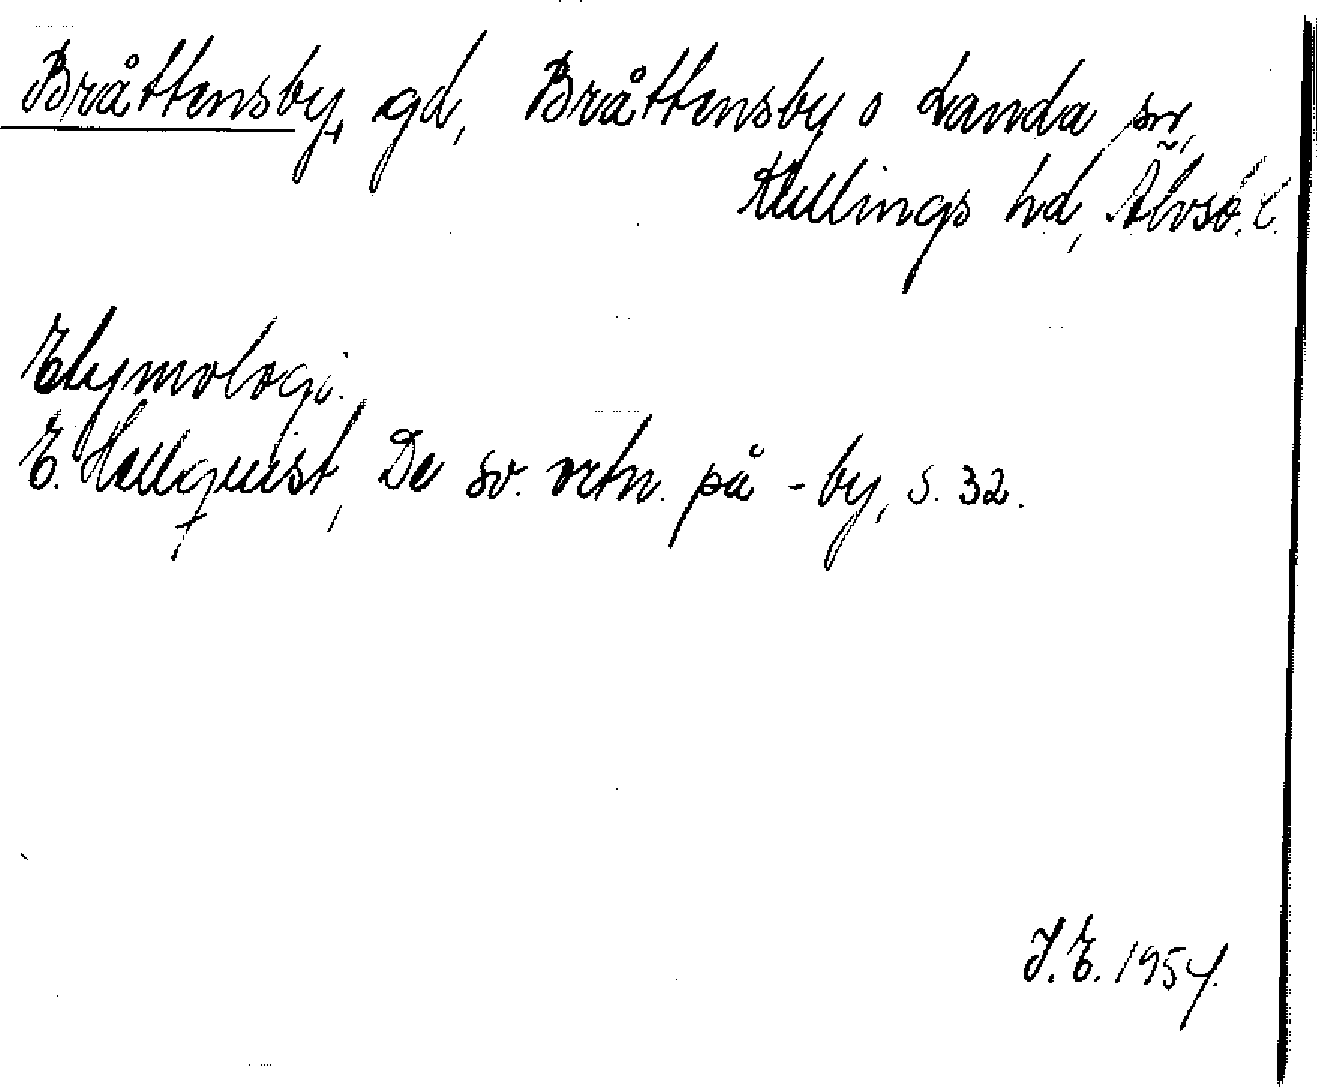 Bråttensby, gd, Bråttensby o Landa snr,
Kullings hd, Älvsb. l.
Etymologi.
E. Hellquist, De sv. ortn. på -by, s. 32.
J.E. 1954.